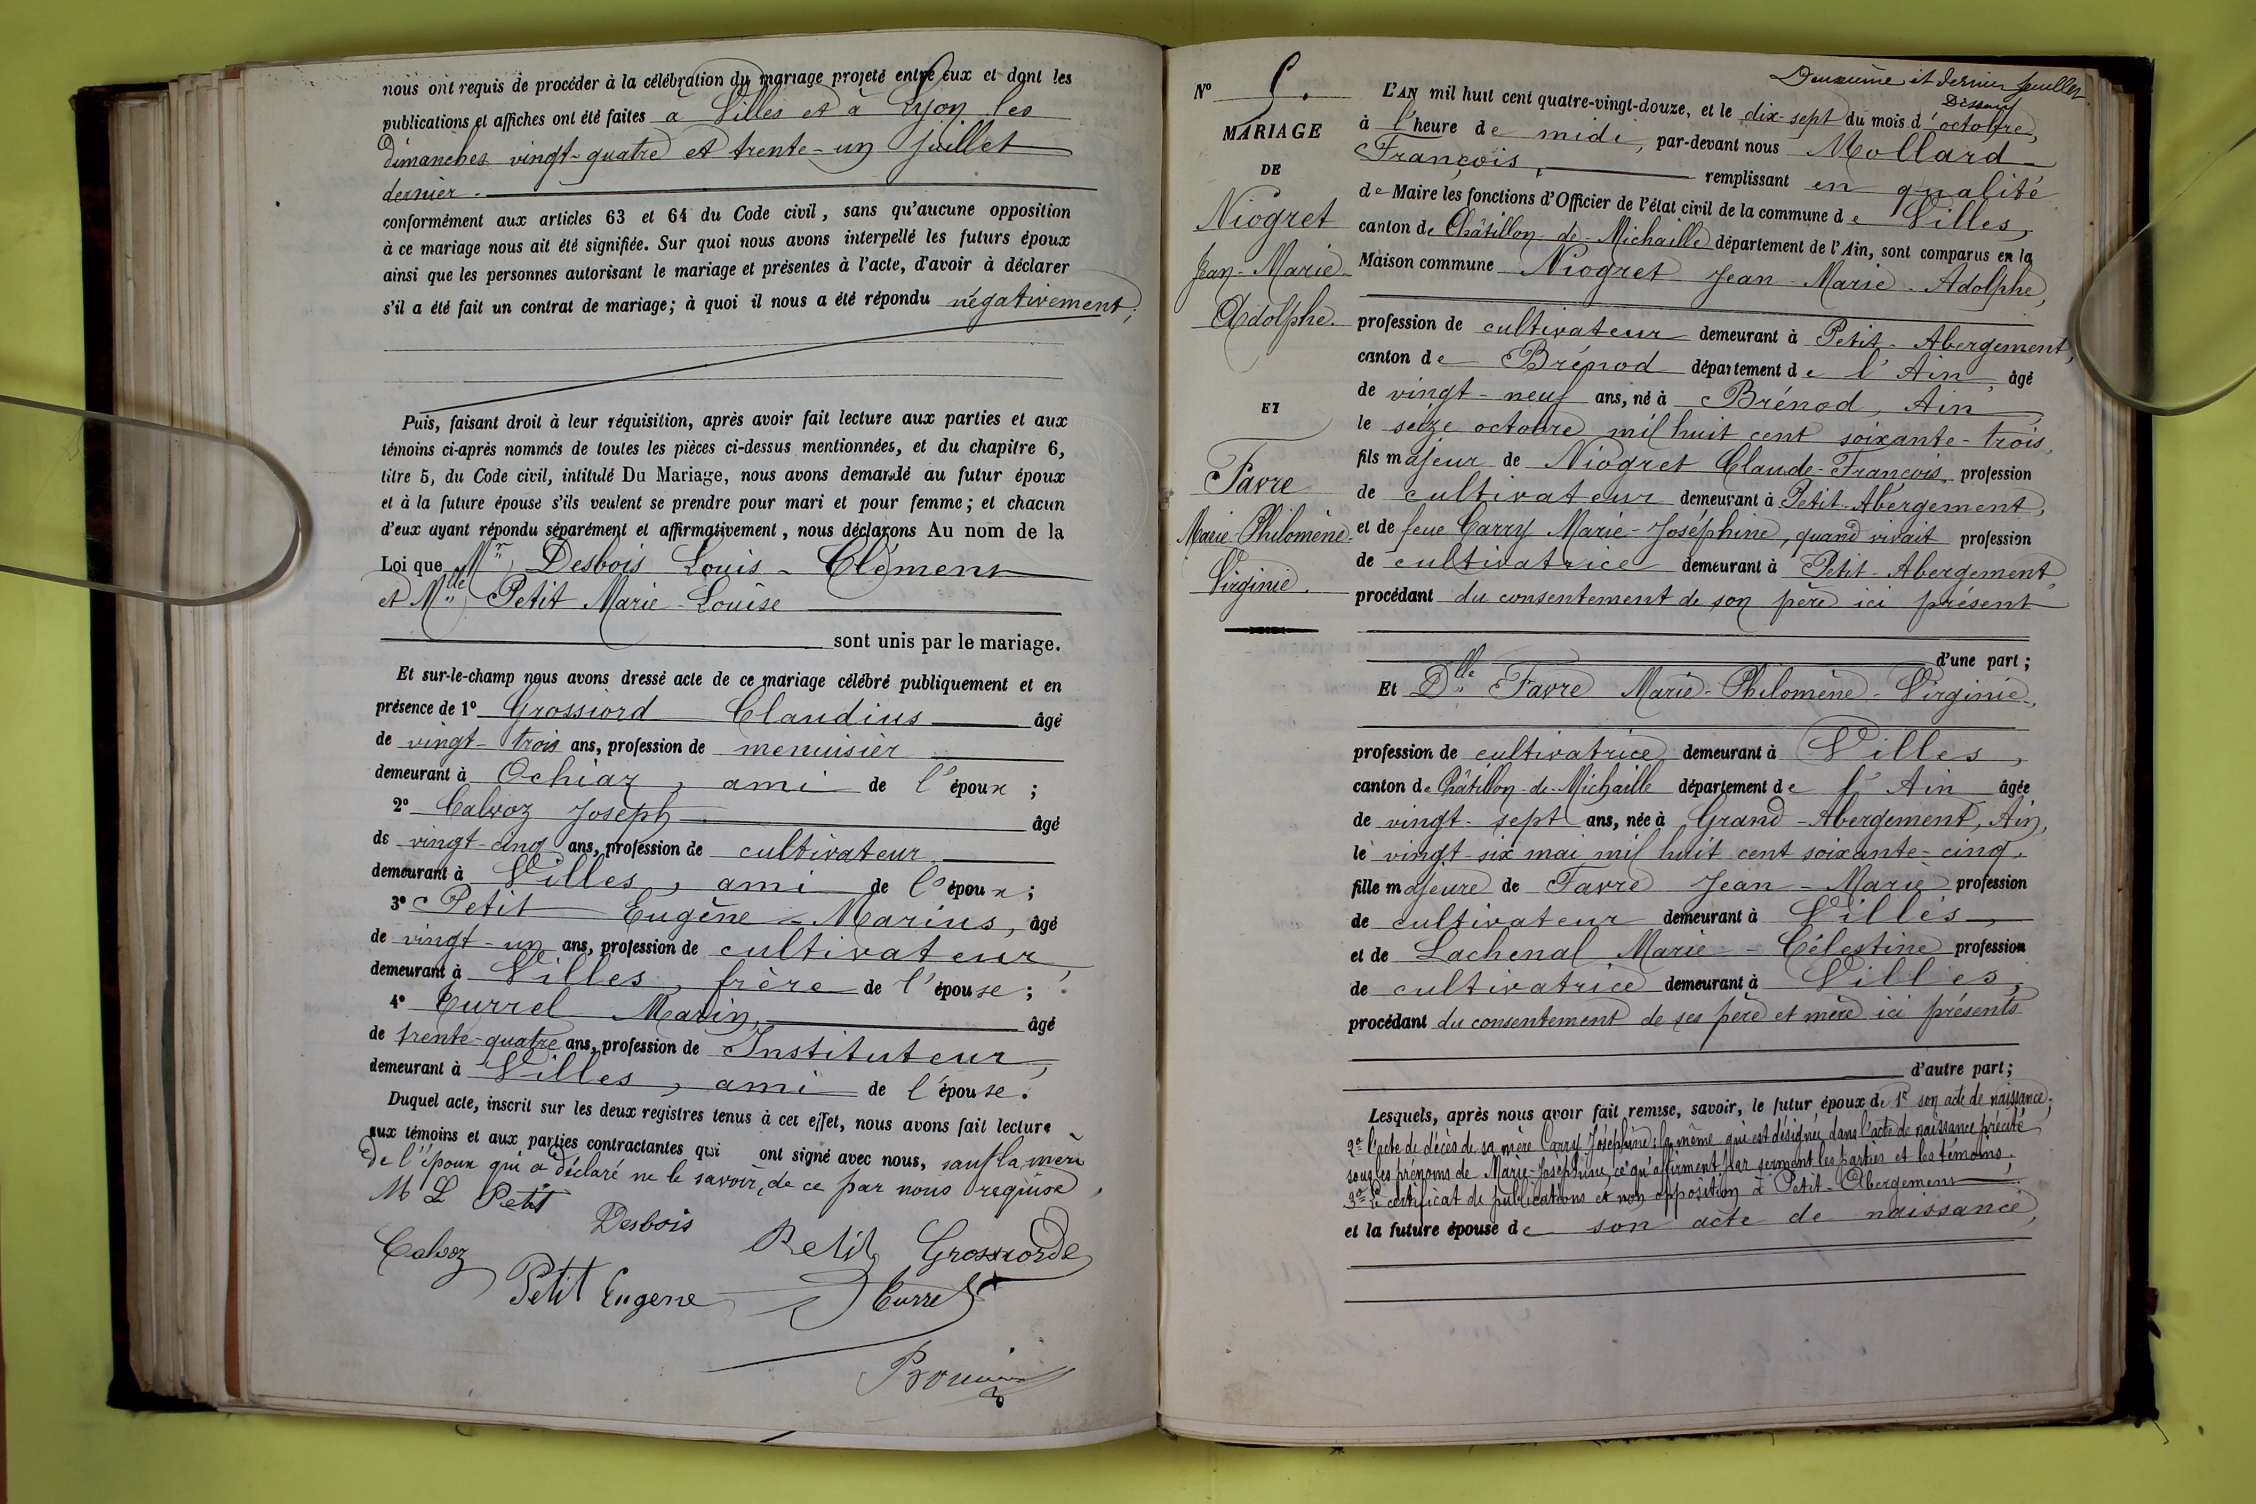 nous ont requis de procéder à la célébration du mariage projeté entre eux et dont les
publications et affiches ont été faites à Villes et à Lyon les
dimanches vingt-quatre et trente-un juillet
dernier.
conformément aux articles 63 et 64 du Code civil, sans qu'aucune opposition
à ce mariage nous ait été signifiée. Sur quoi nous avons interpellé les futurs époux
ainsi que les personnes autorisant le mariage et présentes à l'acte, d'avoir à déclarer
s'il a été fait un contrat de mariage; à quoi il nous a été répondu négativement;
Puis, faisant droit à leur réquisition, après avoir fait lecture aux parties et aux
témoins ci-après nommés de toutes les pièces ci-dessus mentionnées, et du chapitre 6,
titre 5, du Code civil, intitulé Du Mariage, nous avons demandé au futur époux
et à la future épouse s'ils veulent se prendre pour mari et pour femme; et chacun
d'eux ayant répondu séparément et affirmativement, nous déclarons Au nom de la
Loi que Mr Desbois Louis-Clément
et Mlle Petit Marie-Louise
sont unis par le mariage.
Et sur-le-champ nous avons dressé acte de ce mariage célébré publiquement et en
présence de 1° Grossiord Claudius âgé
de vingt-trois ans, profession de menuisier
demeurant à Ochiaz, ami de l'époux;
2° Calvoz Joseph âgé
de vingt-cinq ans, profession de cultivateur
demeurant à Villes, ami de l'époux;
3° Petit Eugène-Marius, âgé
de vingt-un ans, profession de cultivateur,
demeurant à Villes, frère de l'épouse;
4° Currel Marin, âgé
de trente-quatre ans, profession de Instituteur,
demeurant à Villes, ami de l'épouse.
Duquel acte, inscrit sur les deux registres tenus à cet effet, nous avons fait lecture
aux témoins et aux parties contractantes qui ont signé avec nous, sauf la mère
de l'époux qui a déclaré ne le savoir, de ce par nous requise,
M L Petit
Desbois
Petit Grossiorde
Calvoz
Petit Eugene Currel
N° 5.
MARIAGE
DE
Niogret
Jean-Marie
Adolphe.
ET
Favre
Marie-Philomène-
Virginie.
Deuxième et dernier feuillet
L'AN mil huit cent quatre-vingt-douze, et le dix-sept du mois d'octobre,
à l'heure de midi, par-devant nous Mollard
François, remplissant en qualité
de Maire les fonctions d'Officier de l'état civil de la commune de Villes,
canton de Châtillon-de-Michaille département de l'Ain, sont comparus en la
Maison commune Niogret Jean-Marie-Adolphe,
profession de cultivateur demeurant à Petit-Abergement,
canton de Brénod département de l'Ain, âgé
de vingt-neuf ans, né à Brénod, Ain,
le seize octobre mil huit cent soixante-trois,
fils majeur de Niogret Claude-François, profession
de cultivateur demeurant à Petit-Abergement,
et de feue Carry Marie-Joséphine, quand vivait profession
de cultivatrice demeurant à Petit-Abergement,
procédant du consentement de son père ici présent
d'une part;
Et Dlle Favre Marie-Philomène-Virginie,
profession de cultivatrice demeurant à Villes,
canton de Châtillon-de-Michaille département de l'Ain âgée
de vingt-sept ans, née à Grand-Abergement, Ain,
le vingt-six mai mil huit cent soixante-cinq,
fille majeure de Favre Jean-Marie profession
de cultivateur demeurant à Villes,
et de Lachenal Marie-Célestine profession
de cultivatrice demeurant à Villes,
procédant du consentement de ses père et mère ici présents
d'autre part;
Lesquels, après nous avoir fait remise, savoir, le futur époux de 1° son acte de naissance;
2° l'acte de décès de sa mère Carry Joséphine, la même qui est désignée dans l'acte de naissance précité
sous les prénoms de Marie-Joséphine, ce qu'affirment par serment les parties et les témoins;
3° le certificat de publications et non opposition à Petit-Abergement
et la future épouse de son acte de naissance,